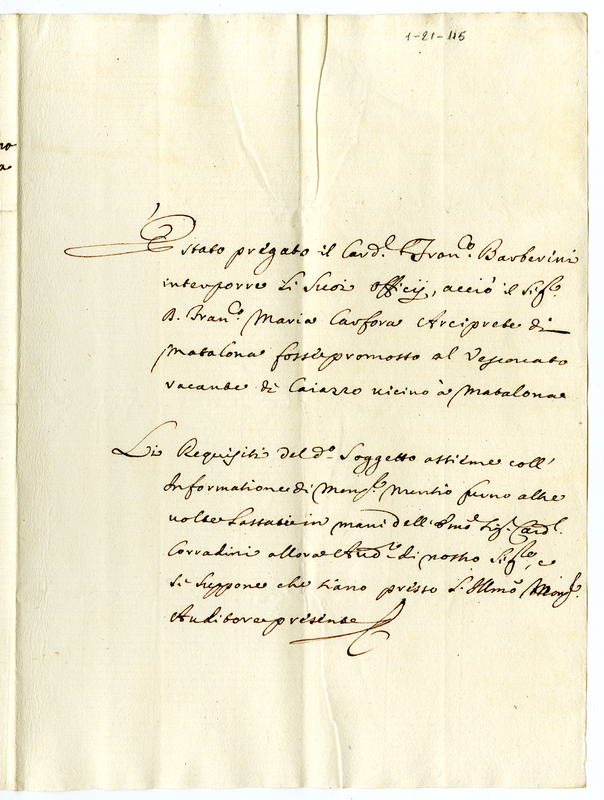 1-21-115
no
a
Estato pregato il Card.l Fran.co Barberini
interporre li suoi officij, acciò il Sig.r
D. Fran.co Maria Carfora Arciprete di
Matalona fosse promosso al Vescovato
vacante di Caiazzo vicino à Matalona
Li Requisiti del d.o Soggetto assieme coll'
Informatione di Mons.r Nuntio furno altre
volte lassati in mani dell' Em.o Sig.r Card.l
Corradini allora Aud.re di nostro Sig.re, e
si suppone che siano presso S. Ill.mo Mons.r
Auditore presente